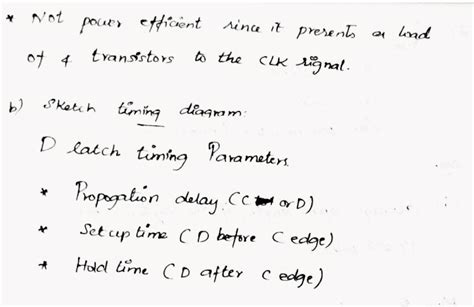 * Not power efficient since it presents a load
of 4 transistors to the CLK signal.
b) Sketch timing diagram:
D latch timing Parameters.
* Propogation delay (C or D)
* Set up time (D before C edge)
* Hold time (D after C edge)